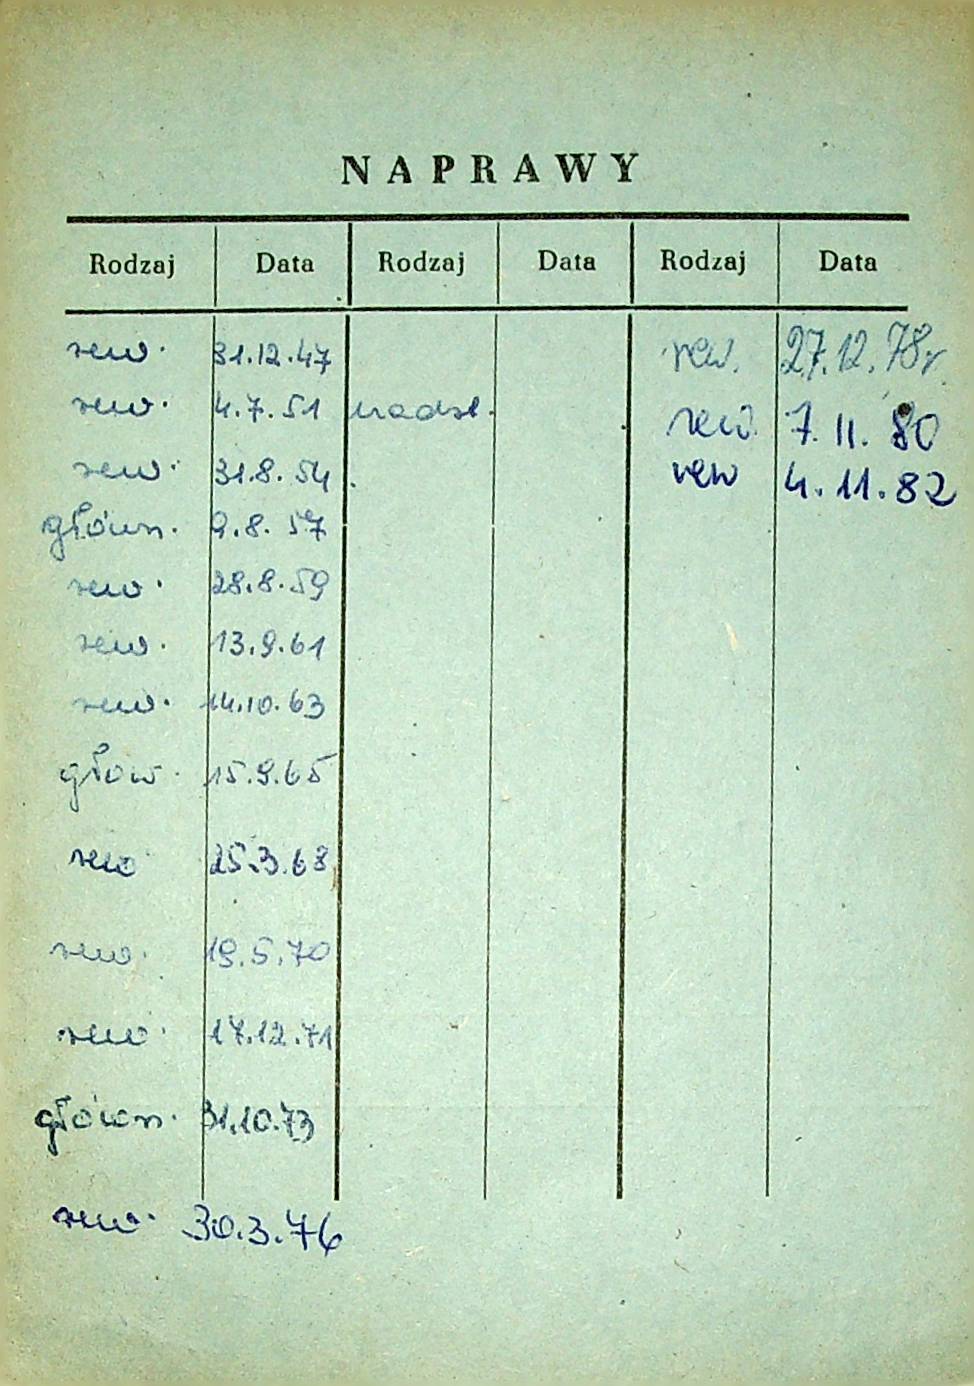 NAPRAWY
Rodzaj Data Rodzaj Data Rodzaj Data
rew. 31.12.47 rew. 27.12.78r
rew. 4.7.51 nadzl. rew. 7.11.80
rew. 31.8.54 rew 4.11.82
główn. 9.8.57
rew. 28.8.59
rew. 13.9.61
rew. 14.10.63
głow. 15.9.65
rew 25.3.68
rew. 19.5.70
rew. 17.12.71
główn. 31.10.73
rew. 30.3.76